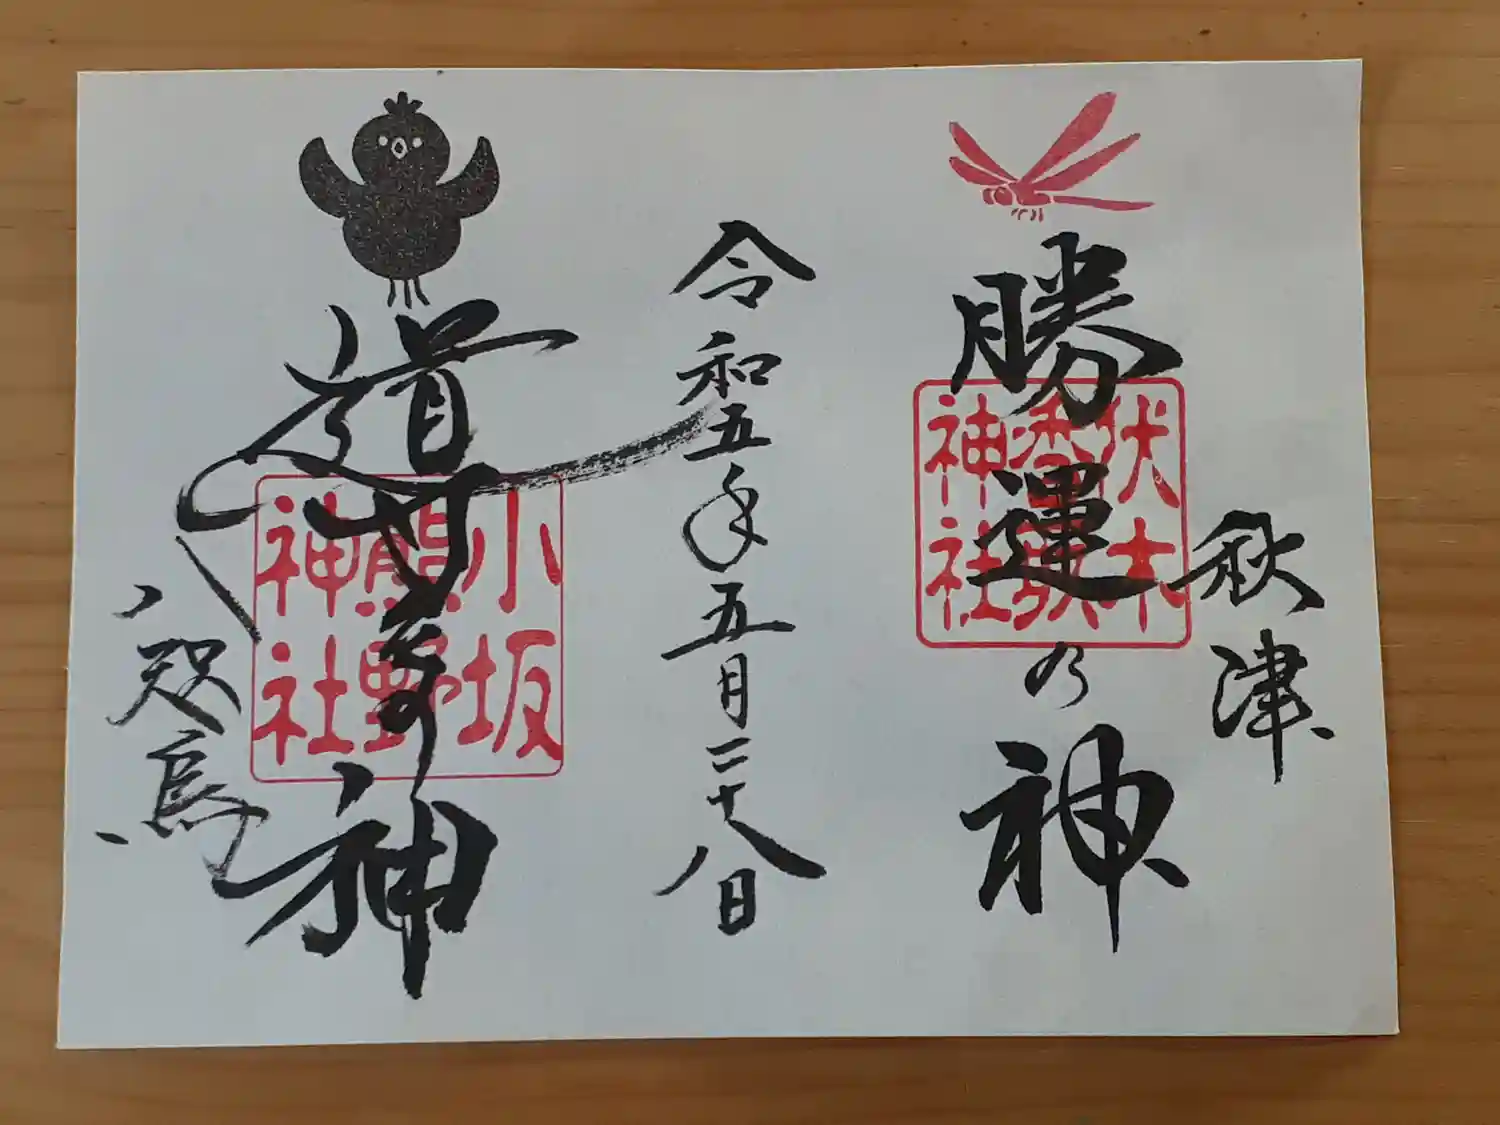 秋津
勝運乃神
伏木
香取
神社
令和五年五月二十八日
導きの神
小坂
熊野
神社
八咫烏